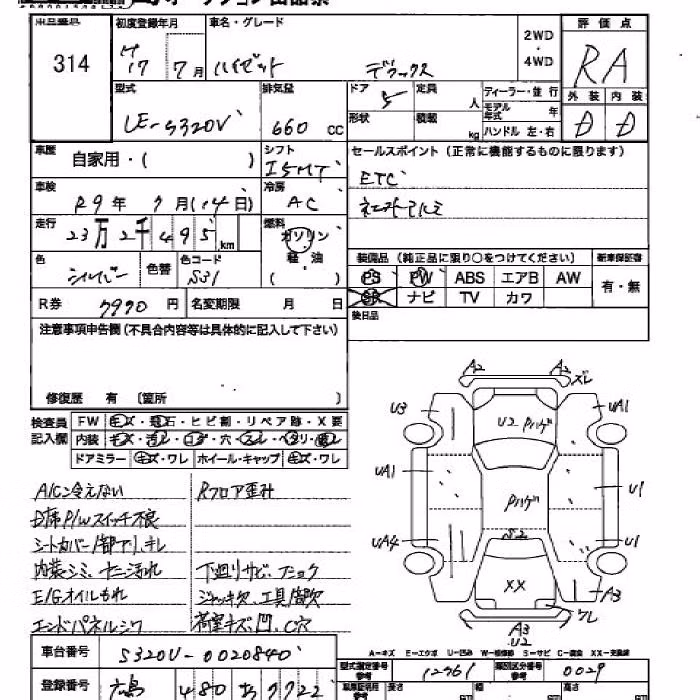 314
初度登録年月
車名・グレード
H17 7月
ハイゼット
デラックス
2WD
・
4WD
評価点
RA
外装 内装
D D
型式
LE-S320V
排気量
660 cc
ドア
5
定員
人
形状
積載
kg
ディーラー・並行
モデル年式
年
ハンドル 左・右
車歴
自家用・( )
シフト
I5MT
車検
R9年 7月(14日)
冷房
AC
走行
23万2千495 km
燃料
ガソリン
軽・油
( )
色
シルバー
色替
色コード
S31
R券
7990 円
名変期限 月 日
セールスポイント(正常に機能するものに限ります)
ETC
装備品(純正品に限り○をつけてください)
新車保証書
PS PW ABS エアB AW
SR ナビ TV カワ
有・無
後日品
注意事項申告欄(不具合内容等は具体的に記入して下さい)
修復歴 有 〔箇所 〕
検査員
記入欄
FW キズ・飛石・ヒビ割・リペア跡・X要
内装 キズ・汚レ・コゲ・穴・スレ・ヘタリ・
ドアミラー キズ・ワレ ホイール・キャップ キズ・ワレ
A/C冷えない
Rフロア歪み
D席P/Wスイッチ不良
シートカバー1部下り、キレ
内装シミ、ヤニ汚れ
下廻りサビ、
E/Gオイルもれ
ジャッキ欠、工具1部欠
エンドパネルシワ
荷室キズ、凹、C穴
A2 A2 ズレ
U3
UA1
U2 Pハゲ
UA1
U1
Pハゲ
UA4
S2
U1
XX
A3
ワレ
A3
U2
A-キズ E-エクボ U-凹み W-補修跡 S-サビ C-腐食 XX-交換済
車台番号
S320V-0020840
型式指定番号
参考
12961
類別区分番号
参考
0029
登録番号
広島 480 あ 7722
長さ
幅
高さ